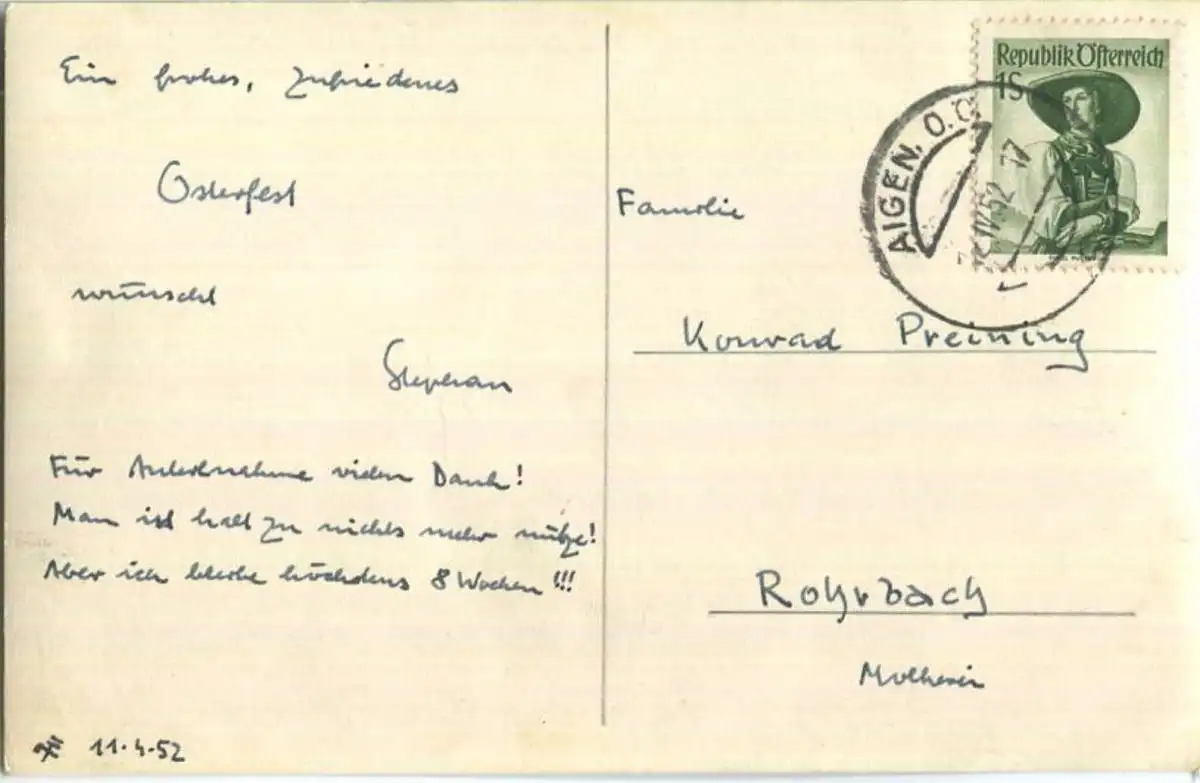 Ein frohes, zufriedenes
Osterfest
wünscht
Stephan
Für Anteilnahme vielen Dank!
Man ist halt zu nichts mehr nütze!
Aber ich bleibe höchstens 8 Wochen!!!
11.4.52
Republik Österreich
1S
AIGEN, O.Ö.
IV.52 17
Familie
Konrad Preining
Rohrbach
Molkerei